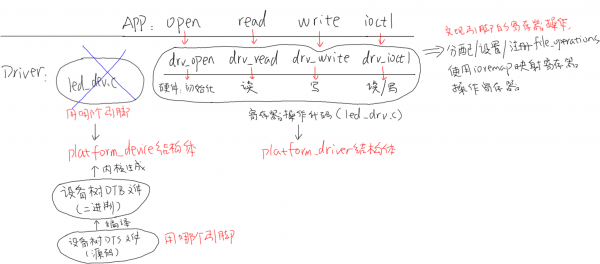 APP: open read write ioctl
Driver:
led_dev.c
drv_open drv_read drv_write drv_ioctl
硬件初始化 读 写 读/写
实现引脚的寄存器操作
分配/设置/注册file_operations
使用ioremap映射寄存器
操作寄存器
用哪个引脚
寄存器操作代码(led_drv.c)
platform_device结构体
platform_driver结构体
内核生成
设备树DTB文件
(二进制)
编译
设备树DTS文件
(源码)
用哪个引脚